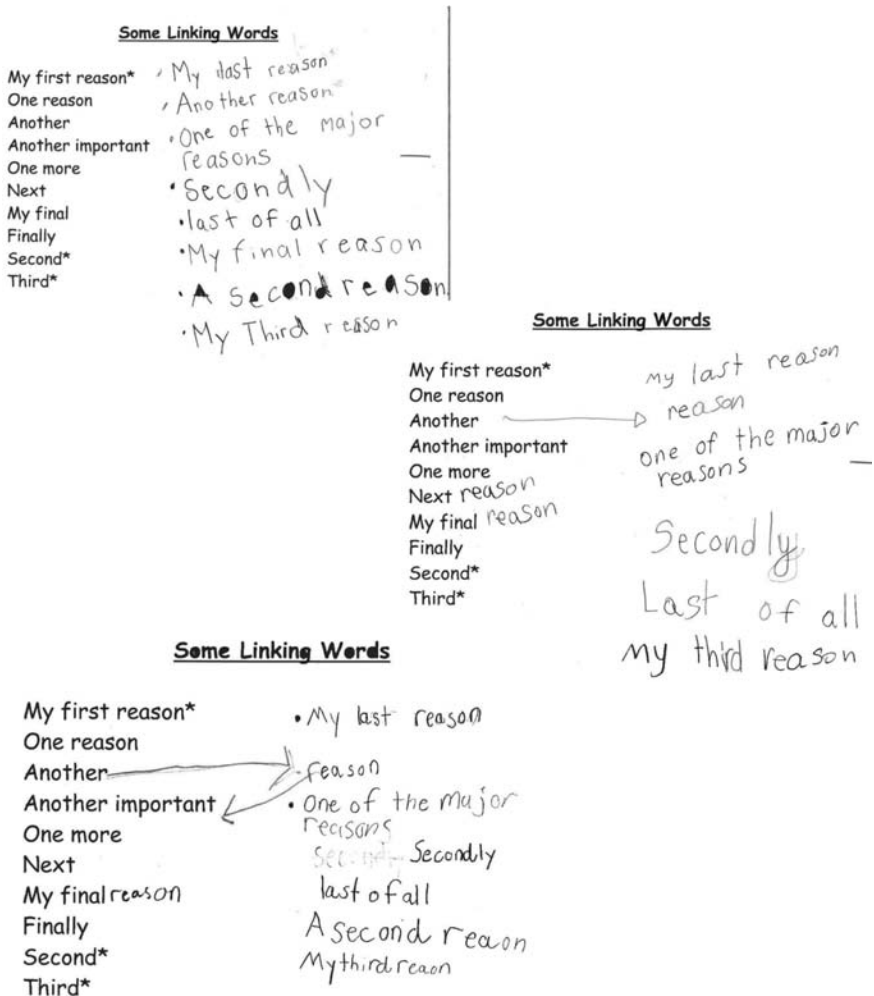 Some Linking Words
My first reason*
One reason
Another
Another important
One more
Next
My final
Finally
Second*
Third*
My last reason
Another reason
One of the major
reasons
Secondly
last of all
My final reason
A second reason
My Third reason
Some Linking Words
My first reason*
One reason
Another
Another important
One more
Next reason
My final reason
Finally
Second*
Third*
my last reason
reason
one of the major
reasons
Secondly
Last of all
my third reason
Some Linking Words
My first reason*
One reason
Another
Another important
One more
Next
My final reason
Finally
Second*
Third*
• My last reason
reason
• One of the major
reasons
Secondly
last of all
A second reaon
My third reaon